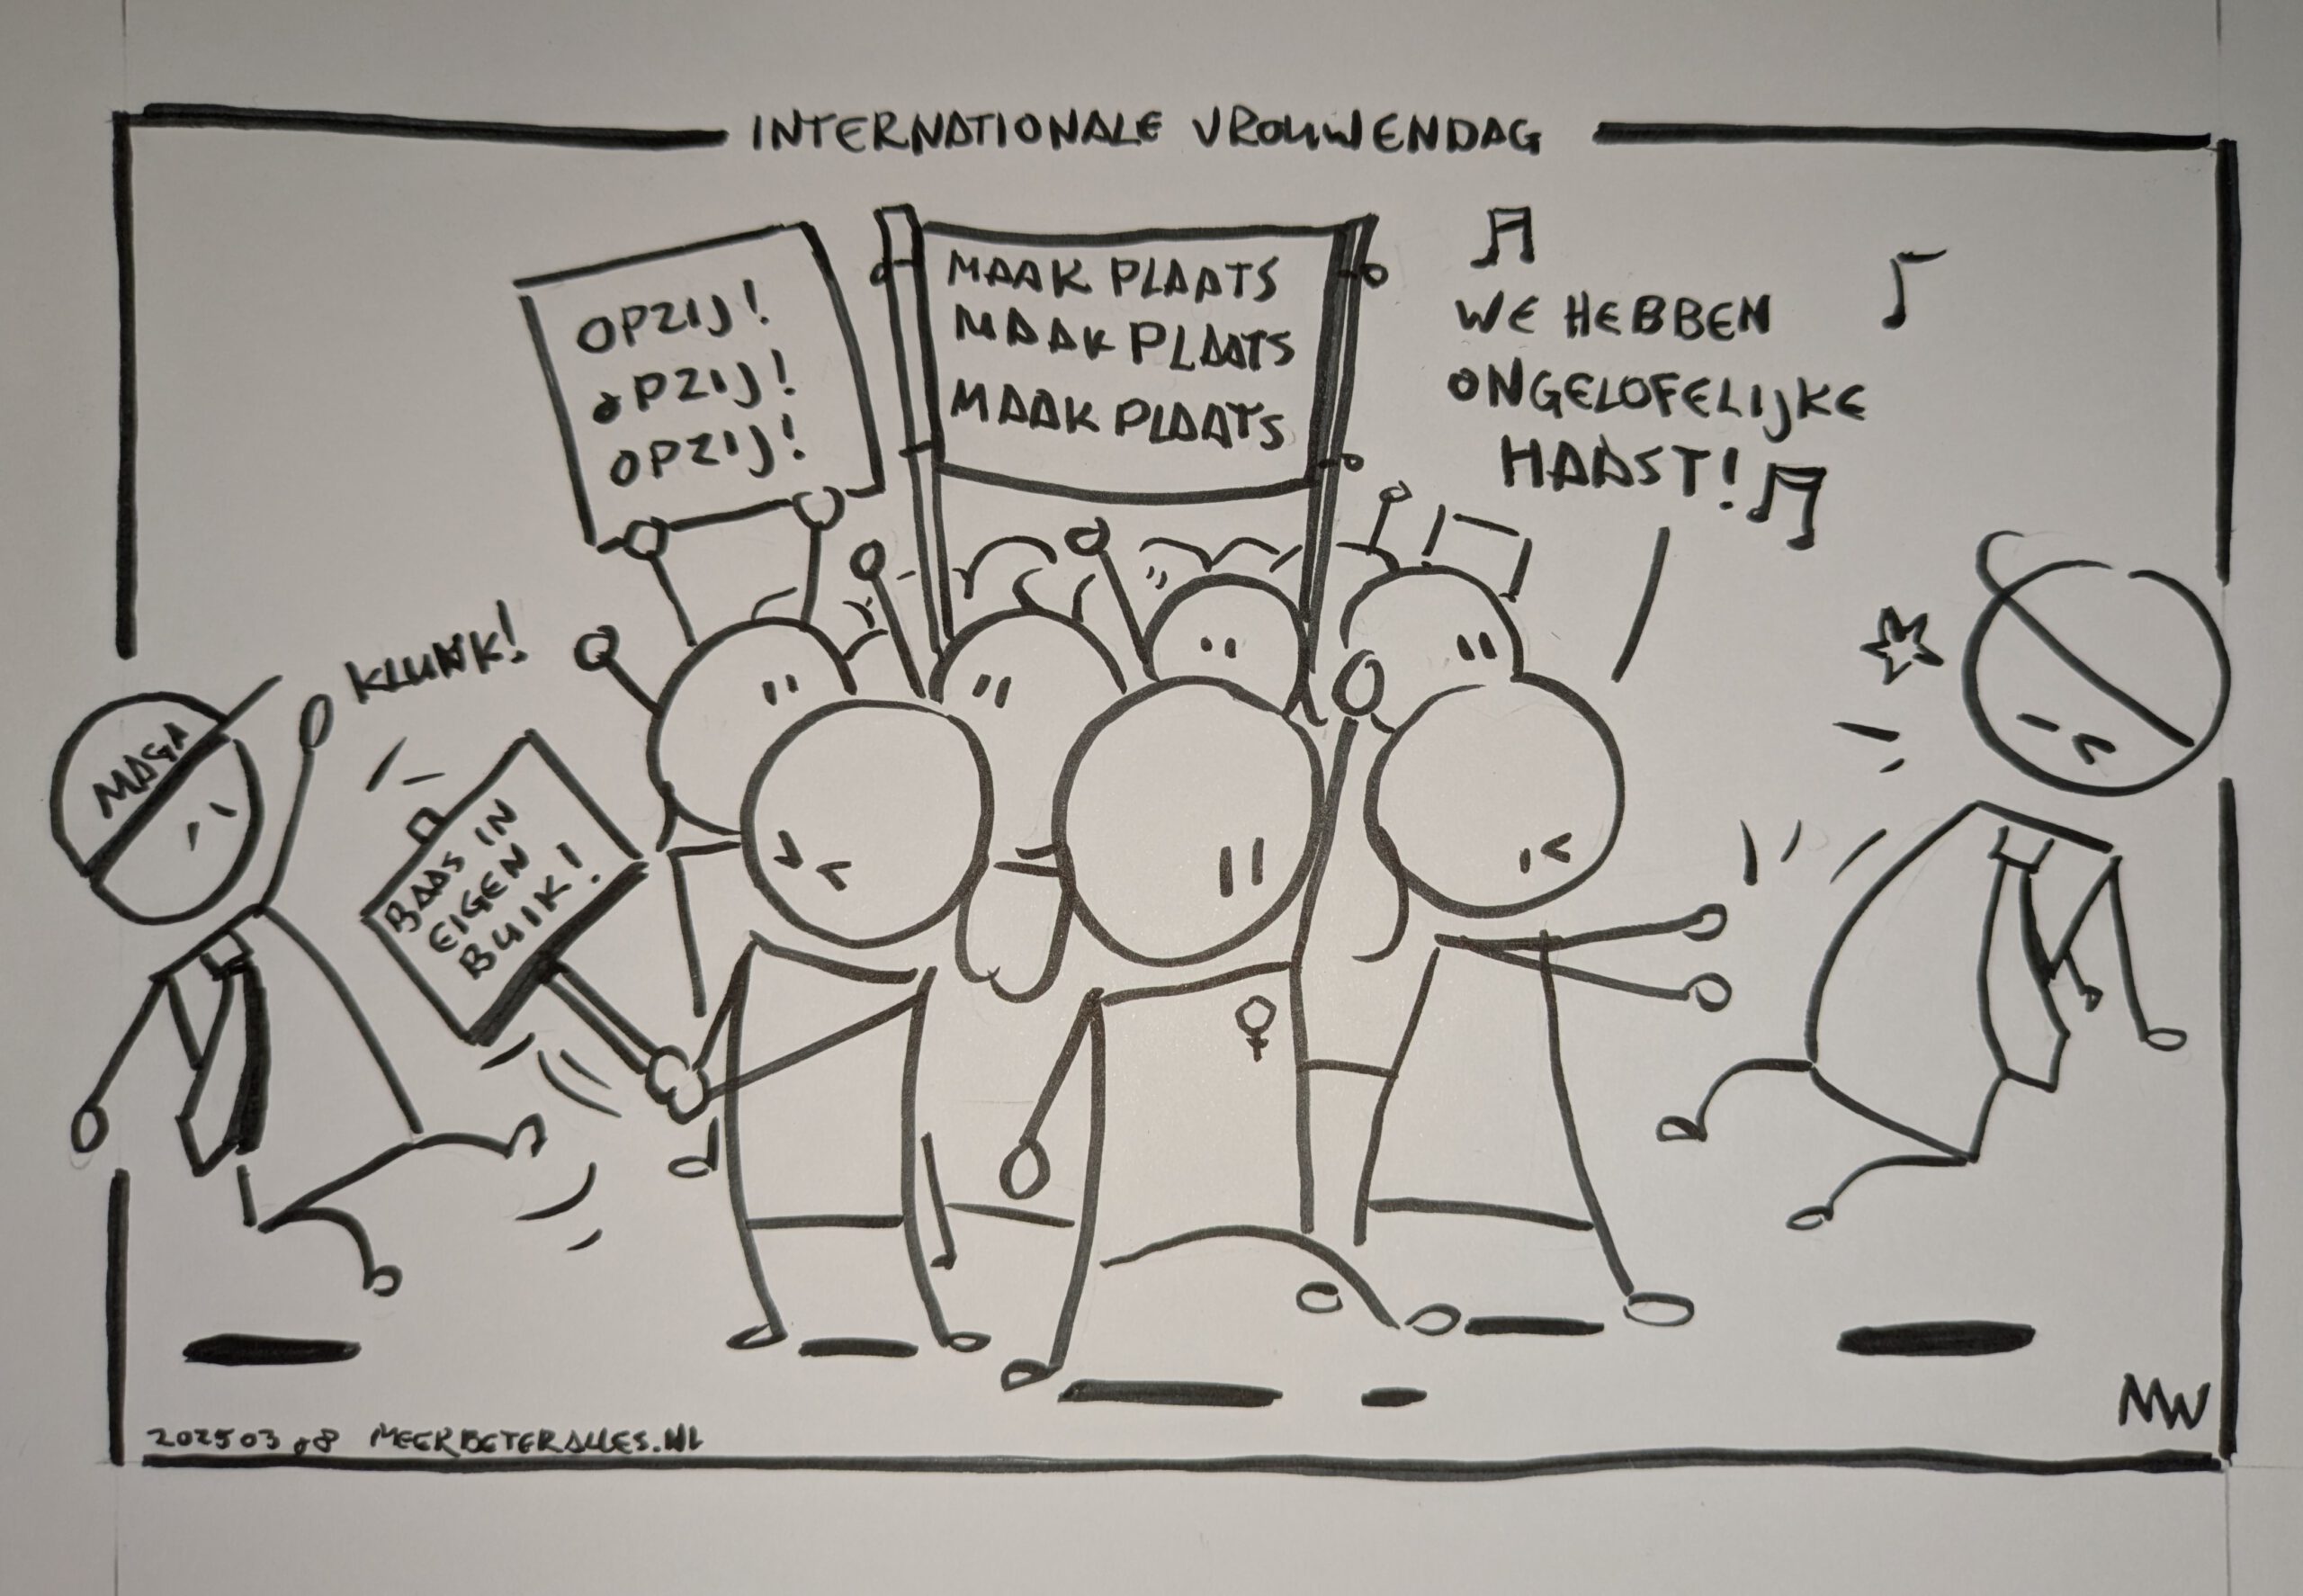 INTERNATIONALE VROUWENDAG
OPZIJ!
OPZIJ!
OPZIJ!
MAAK PLAATS
MAAK PLAATS
MAAK PLAATS
WE HEBBEN
ONGELOFELIJKE
HAAST!
KLUNK!
MAGA
BAAS IN
EIGEN
BUIK!
20250308 MEERBETERALLES.NL
MW